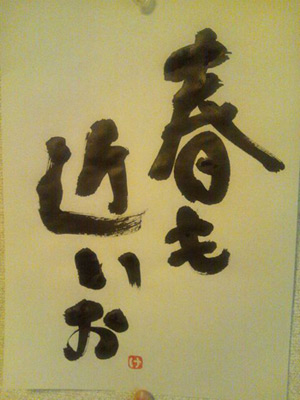 春も
近いお